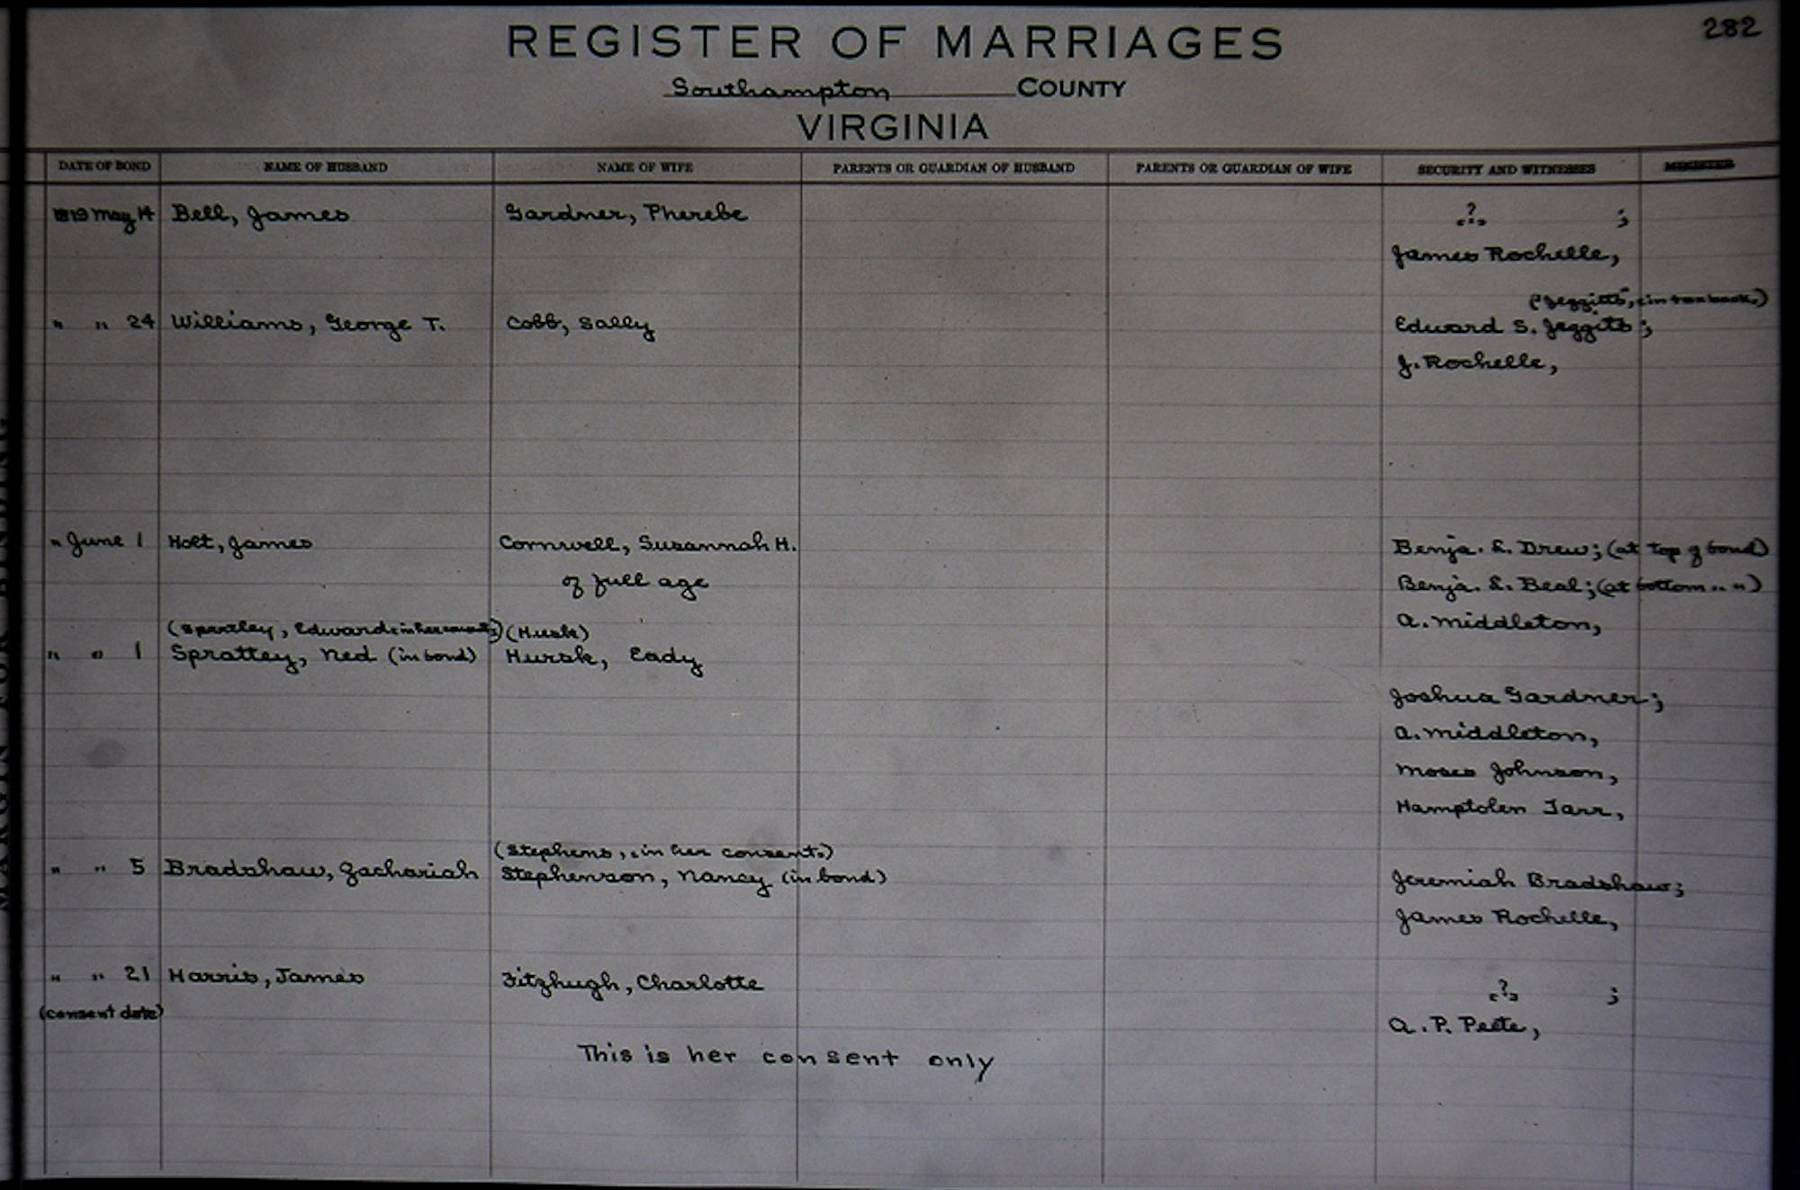 282
REGISTER OF MARRIAGES
Southampton COUNTY
VIRGINIA
DATE OF BOND NAME OF HUSBAND NAME OF WIFE PARENTS OR GUARDIAN OF HUSBAND PARENTS OR GUARDIAN OF WIFE SECURITY AND WITNESSES MINISTER
1819 May 14 Bell, James Gardner, Pherebe ? ;
James Rochelle,
("Jeggitts", in tax book.)
" " 24 Williams, George T. Cobb, Sally Edward S. Jeggitts;
J. Rochelle,
" June 1 Holt, James Cornwell, Susannah H. Benja. S. Drew; (at top of bond)
of full age Benja. S. Beal; (at bottom " ")
A. Middleton,
(Spratley, Edward: in her consent) (Husk)
" " 1 Sprattey, Ned (in bond) Hursk, Eady
Joshua Gardner;
A. Middleton,
Moses Johnson,
Hamptolen Tarr,
(Stephens, in her consent.)
" " 5 Bradshaw, Zachariah Stephenson, Nancy (in bond) Jeremiah Bradshaw;
James Rochelle,
" " 21 Harris, James Fitzhugh, Charlotte ? ;
(consent date) A. P. Peete,
This is her consent only
MARGIN FOR BINDING